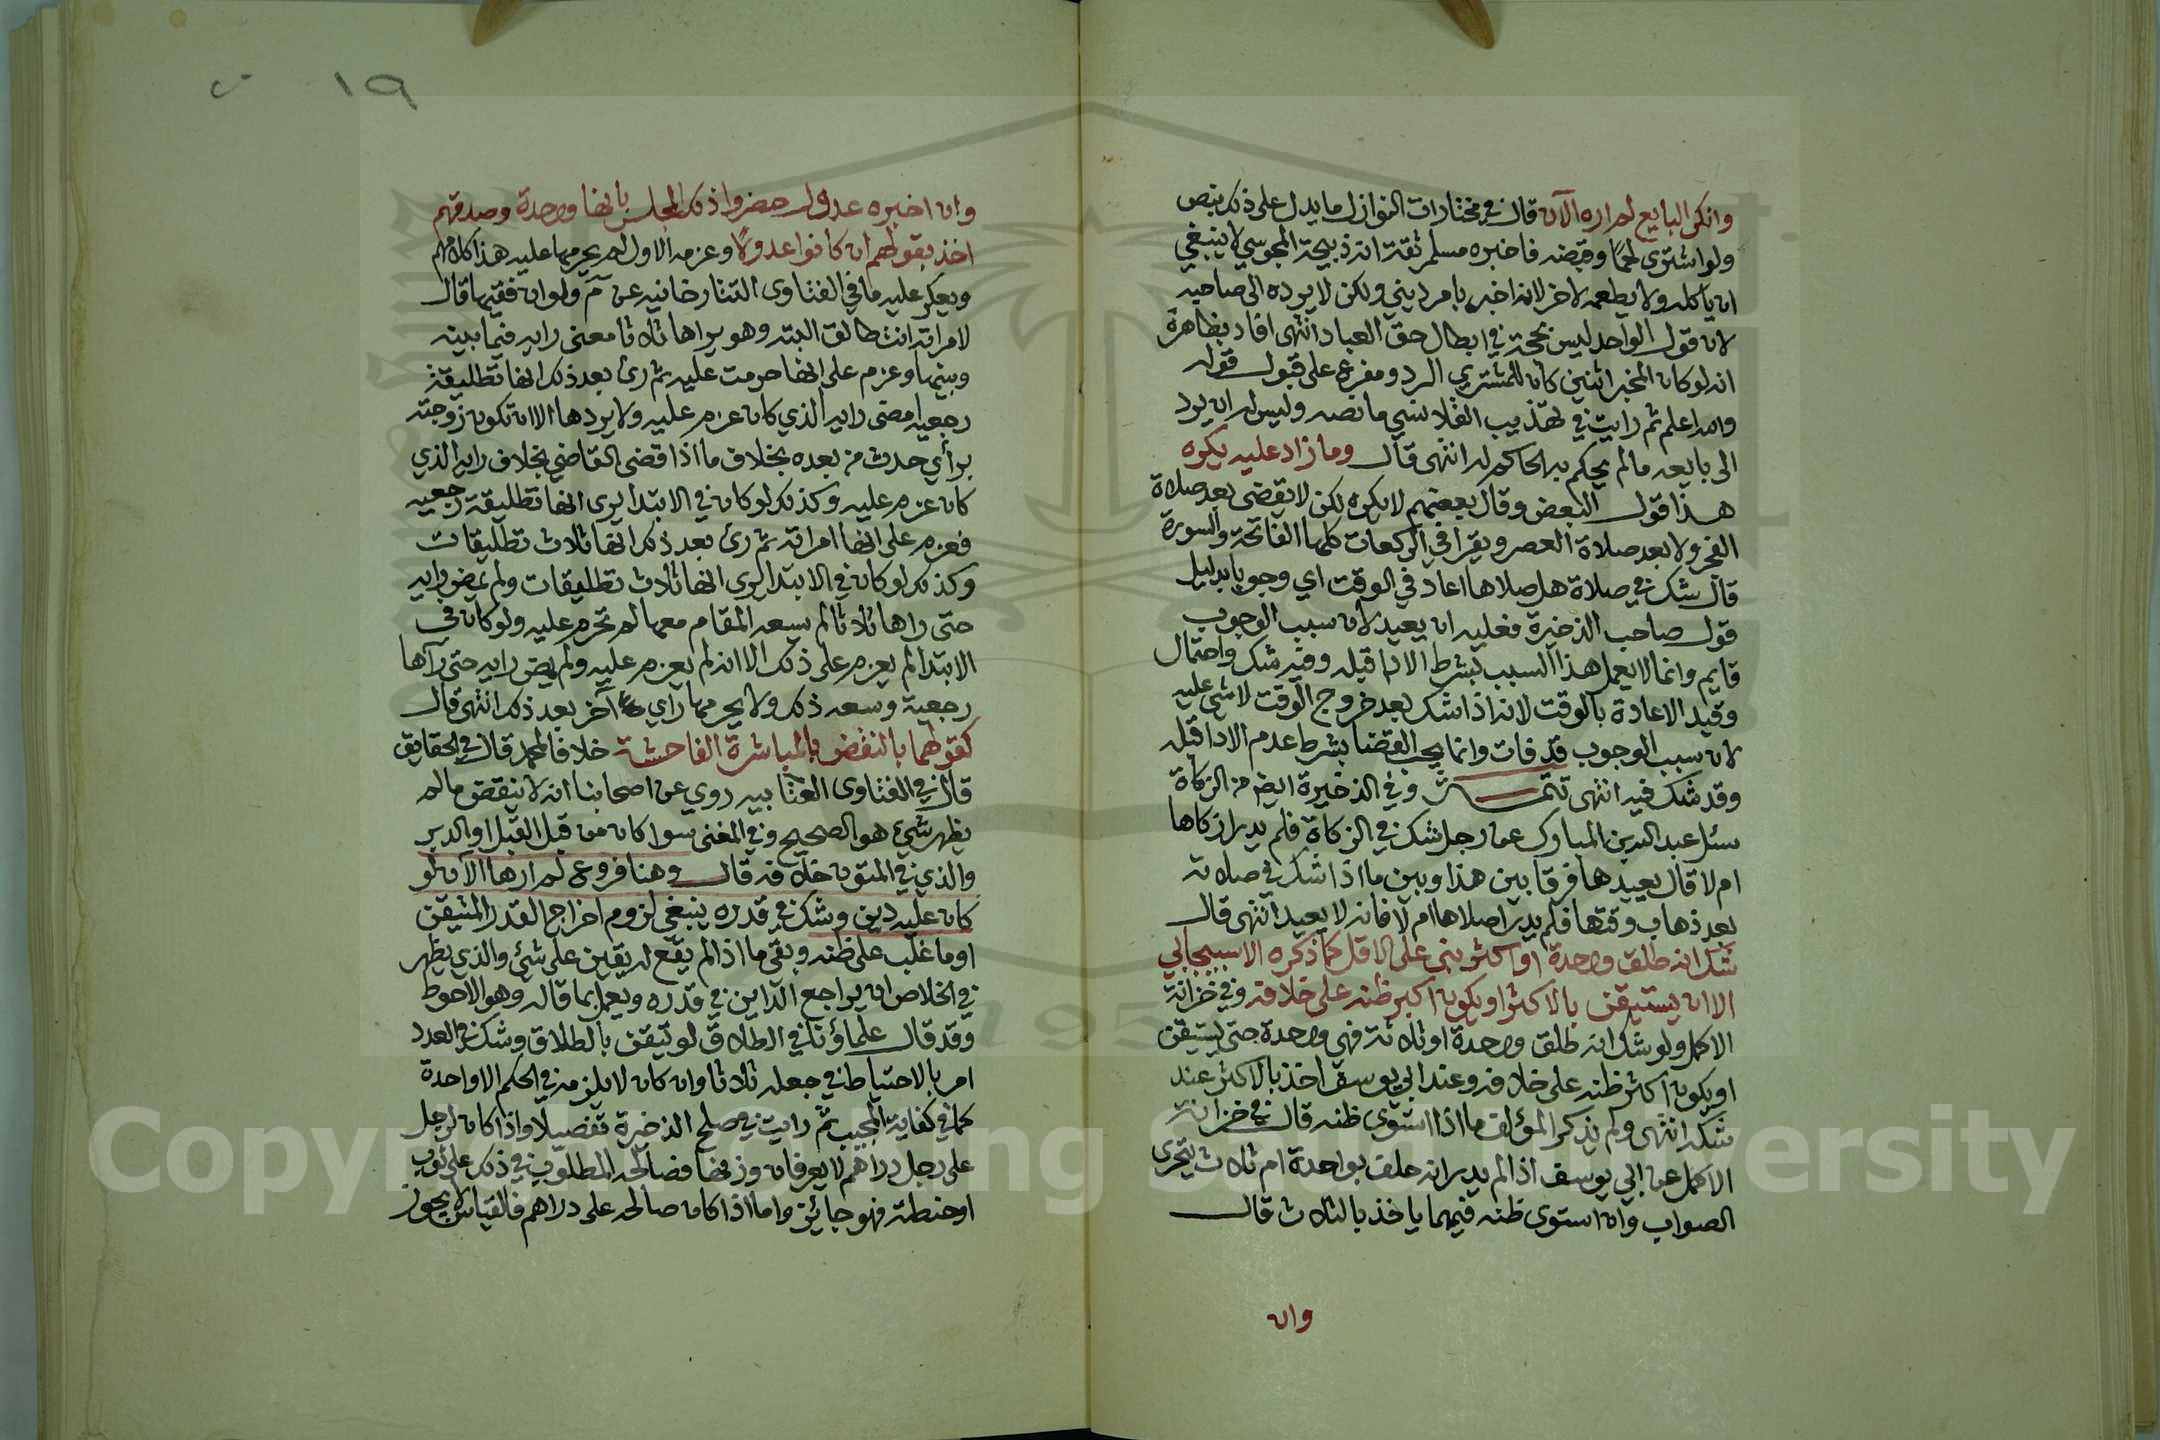 وانكر البايع لم اره الآن قال في مختارات النوازل ما يدل على ذلك بنص
ولو اشترى لحما وقبضه فاخبره مسلم ثقة انه ذبيحة المجوسي لا ينبغي
ان ياكله ولا يطعمه لاخر لانه اخبر بامر ديني ولكن لا يرده الى صاحبه
لان قول الواحد ليس بحجة في ابطال حق العباد انتهى افاد بظاهره
انه لو كان المخبر اثنين كان للمشتري الرد ومفرع على قبول قوله
والله اعلم ثم رايت في تهذيب القلانسي ما نصه وليس له ان يرد
الى بايعه ما لم يحكم به الحاكم له انتهى قال وما زاد عليه يكره
هذا قول البعض وقال بعضهم لا يكره لكن لا يقضي بعد صلاة
الفجر ولا بعد صلاة العصر ويقرا في الركعات كلها الفاتحة والسورة
قال شك في صلاة هل صلاها اعاد في الوقت اي وجوبا بدليل
قول صاحب الذخيرة فعليه ان يعيد لان سبب الوجوب
قايم وانما لا يعمل هذا السبب بشرط الادا قبله وفيه شك واحتمال
وقيد الاعادة بالوقت لانه اذا شك بعد خروج الوقت لا شي عليه
لان سبب الوجوب قد فات وانما يجب القضا بشرط عدم الادا قبله
وقد شك فيه انتهى تتمات وفي الذخيرة ايض من الزكاة
سئل عبد الله بن المبارك عن رجل شك في الزكاة فلم يدر ازكاها
ام لا قال يعيدها فرقا بين هذا وبين ما اذا شك في صلاته
بعد ذهاب وقتها فلم يدر اصلاها ام لا فانه لا يعيد انتهى قال
شك انه طلق وحدة او اكثر بنى على الاقل كما ذكره الاسبيجابي
الا ان يستيقن بالاكثر او يكون اكبر ظنه على خلافه وفي خزانة
الاكمل ولو شك انه طلق وحدة او ثلاثة فهي وحدة حتى يستيقن
او يكون اكثر ظنه على خلافه وعند ابي يوسف اخذ بالاكثر عند
شكه انتهى ولم يذكر المؤلف ما اذا استوى ظنه قال في خزانة
الاكمل عن ابي يوسف اذا لم يدر انه حلف بواحدة ام ثلاث يتحرى
الصواب وان استوى ظنه فيهما ياخذ بالثلاث قال
وان
١٩
وان اخبره عدول حضروا ذلك المجلس بانها وحدة وصدقهم
اخذ بقولهم ان كانوا عدولا وعزمه الاول لم يحرمها عليه هذا كلامهم
ويعكر عليه ما في الفتاوى التتارخانيه عن م ولو ان فقيها قال
لامراته انت طالق البته وهو يراها ثلاثا معنى رايه فيما بينه
وبينها وعزم على انها حرمت عليه ثم رئ بعد ذلك انها تطليقة
رجعيه امضى رايه الذي كان عزم عليه ولا يردها الا ان تكون زوجته
برأي حدث من بعده بخلاف ما اذا قضى القاضي بخلاف رايه الذي
كان عزم عليه وكذلك لو كان في الابتدا يرى انها تطليقة رجعيه
فعزم على انها امراته ثم رئ بعد ذلك انها ثلاث تطليقات
وكذلك لو كان في الابتدا يرى انها ثلاث تطليقات ولم يمض رايه
حتى راها ثلاثا لم يسعه المقام معها لم تحرم عليه ولو كان في
الابتدا لم يعزم على ذلك الا انه لم يعزم عليه ولم يمض رايه حتى رآها
رجعية وسعه ذلك ولا يحرمها راي آخر بعد ذلك انتهى قال
كقولهما بالنقض بالمباشرة الفاحشة خلافا لمحمد قال في الحقايق
قال في الفتاوى العتابيه روي عن اصحابنا انه لا ينقض ما لم
يظهر شيء هو الصحيح وفي المغني سوا كان من قبل القبل او الدبر
والذي في المتون خلافه قال وهنا فروع لم ارها الآن لو
كان عليه دين وشك في قدره ينبغي لزوم اخراج القدر المتيقن
او ما غلب على ظنه وبقي ما اذا لم يقع له يقين على شئ والذي يظهر
في الخلاص ان يراجع الداين في قدره ويعمل بما قاله وهو الاحوط
وقد قال علماؤنا في الطلاق لو تيقن بالطلاق وشك في العدد
امر بالاحتياط في جعله ثلاثا وان كان لا يلزمه في الحكم الا واحدة
كما في كفاية المجيب ثم رايت في صلح الذخيرة تفصيلا واذا كان لرجل
على رجل دراهم لا يعرفان وزنها فصالحه المطلوب في ذلك على ثوب
او حنطة فهو جائز واما اذا كان صالحه على دراهم فالقياس لا يجوز
Copyright © King Saud University
1957